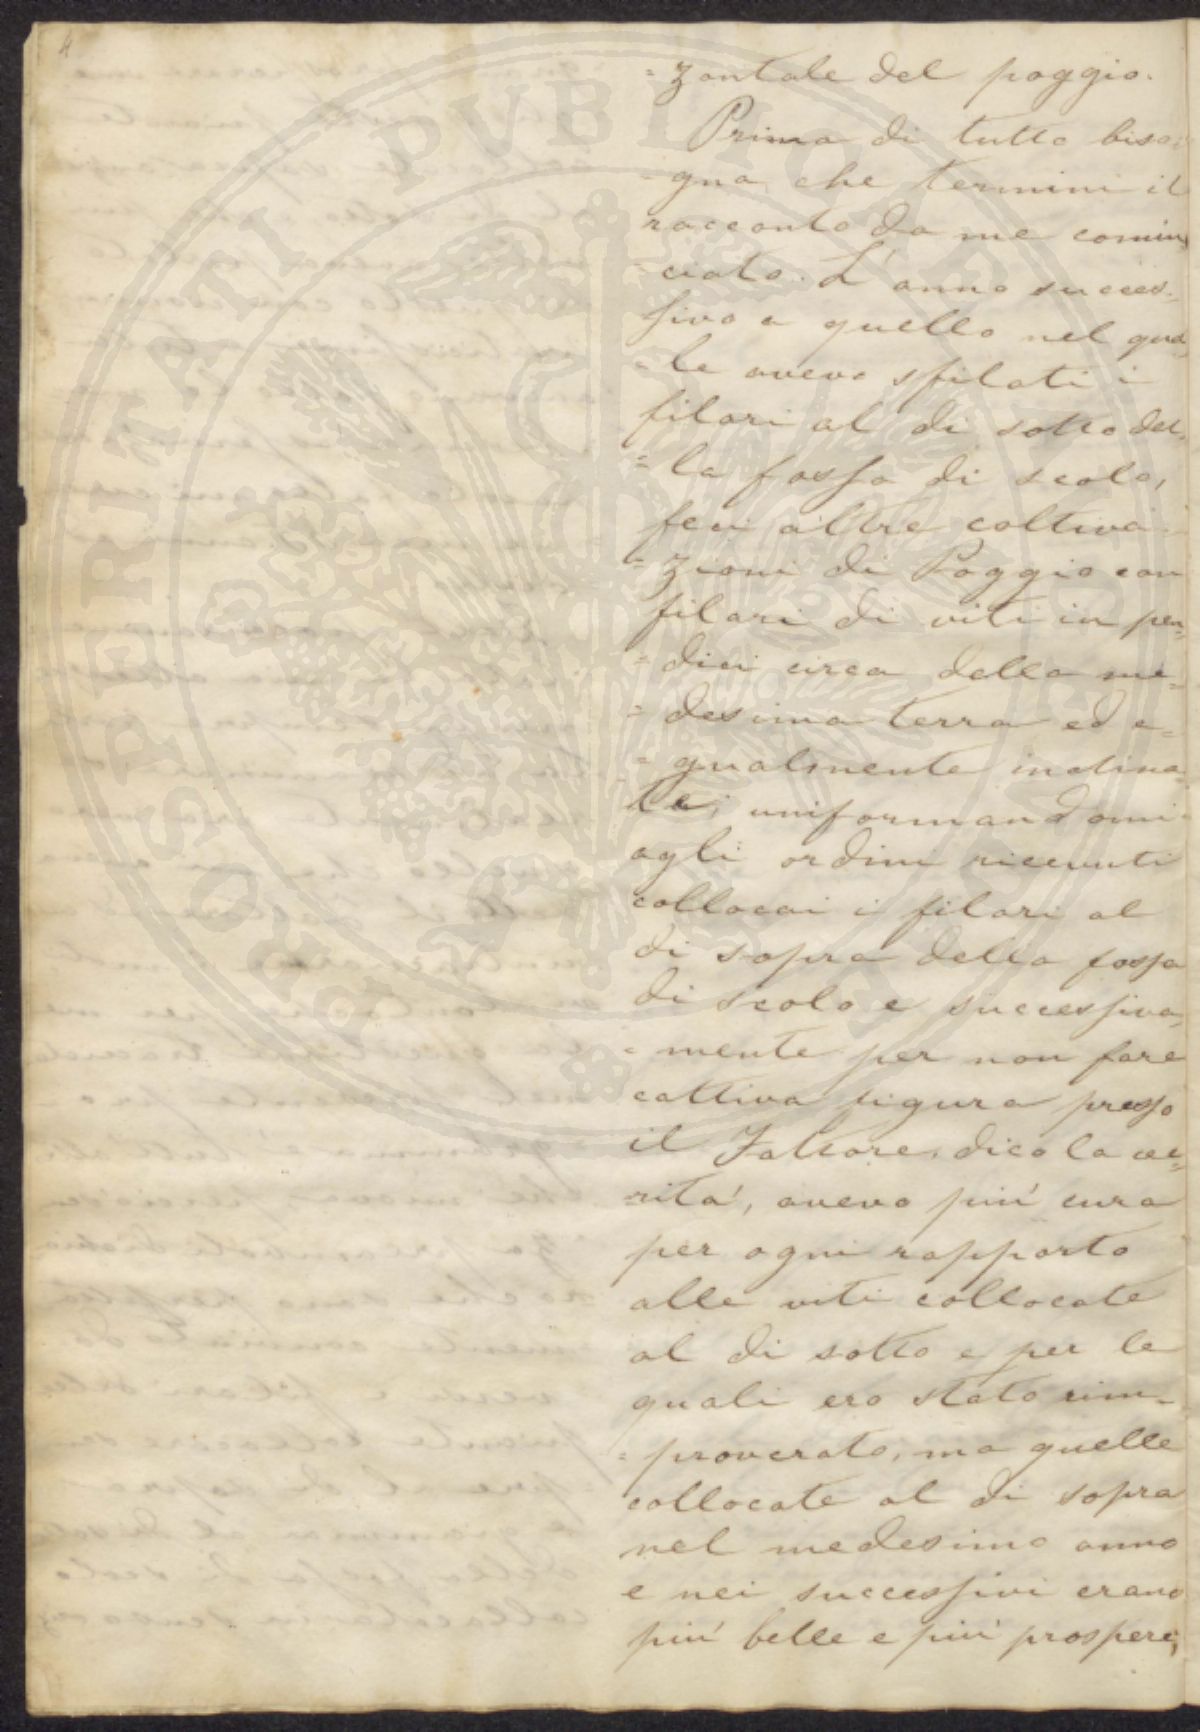 4
=zontale del poggio.
Prima di tutto biso=
=gna, che termini il
racconto da me comin
=ciato. L'anno succes=
sivo a quello nel qua
=le avevo sfilati i
filari al di sotto del=
=la fossa di scolo,
feci altre coltiva=
=zioni di Poggio con
filari di viti in pen=
=dici circa della me=
=desima terra ed e=
=gualmente inclina=
te; uniformandomi
agli ordini ricevuti
collocai i filari al
di sopra della fossa
di scolo e successiva
=mente per non fare
cattiva figura presso
il Fattore, dico la ve=
rita', avevo piu' cura
per ogni rapporto
alle viti collocate
al di sotto e per le
quali ero stato rim=
=proverato, ma quelle
collocate al di sopra
nel medesimo anno
e nei successivi erano
piu' belle e piu' prospere;
PROSPERITATI PUBLICAE